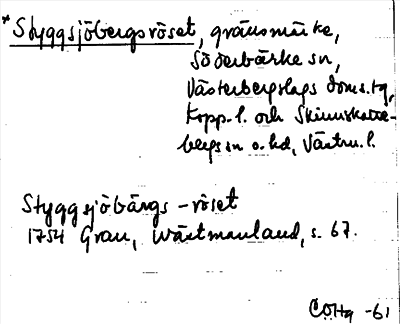 *Styggsjöbergsröset, gränsmärke,
Söderbärke sn,
Västerbergslags doms.tg,
Kopp.l. och Skinnskatte-
bergs sn o. hd, Västm.l.
Styggsjöbärgs-röset
1754 Grau, Wästmanland, s. 67.
COHg -61